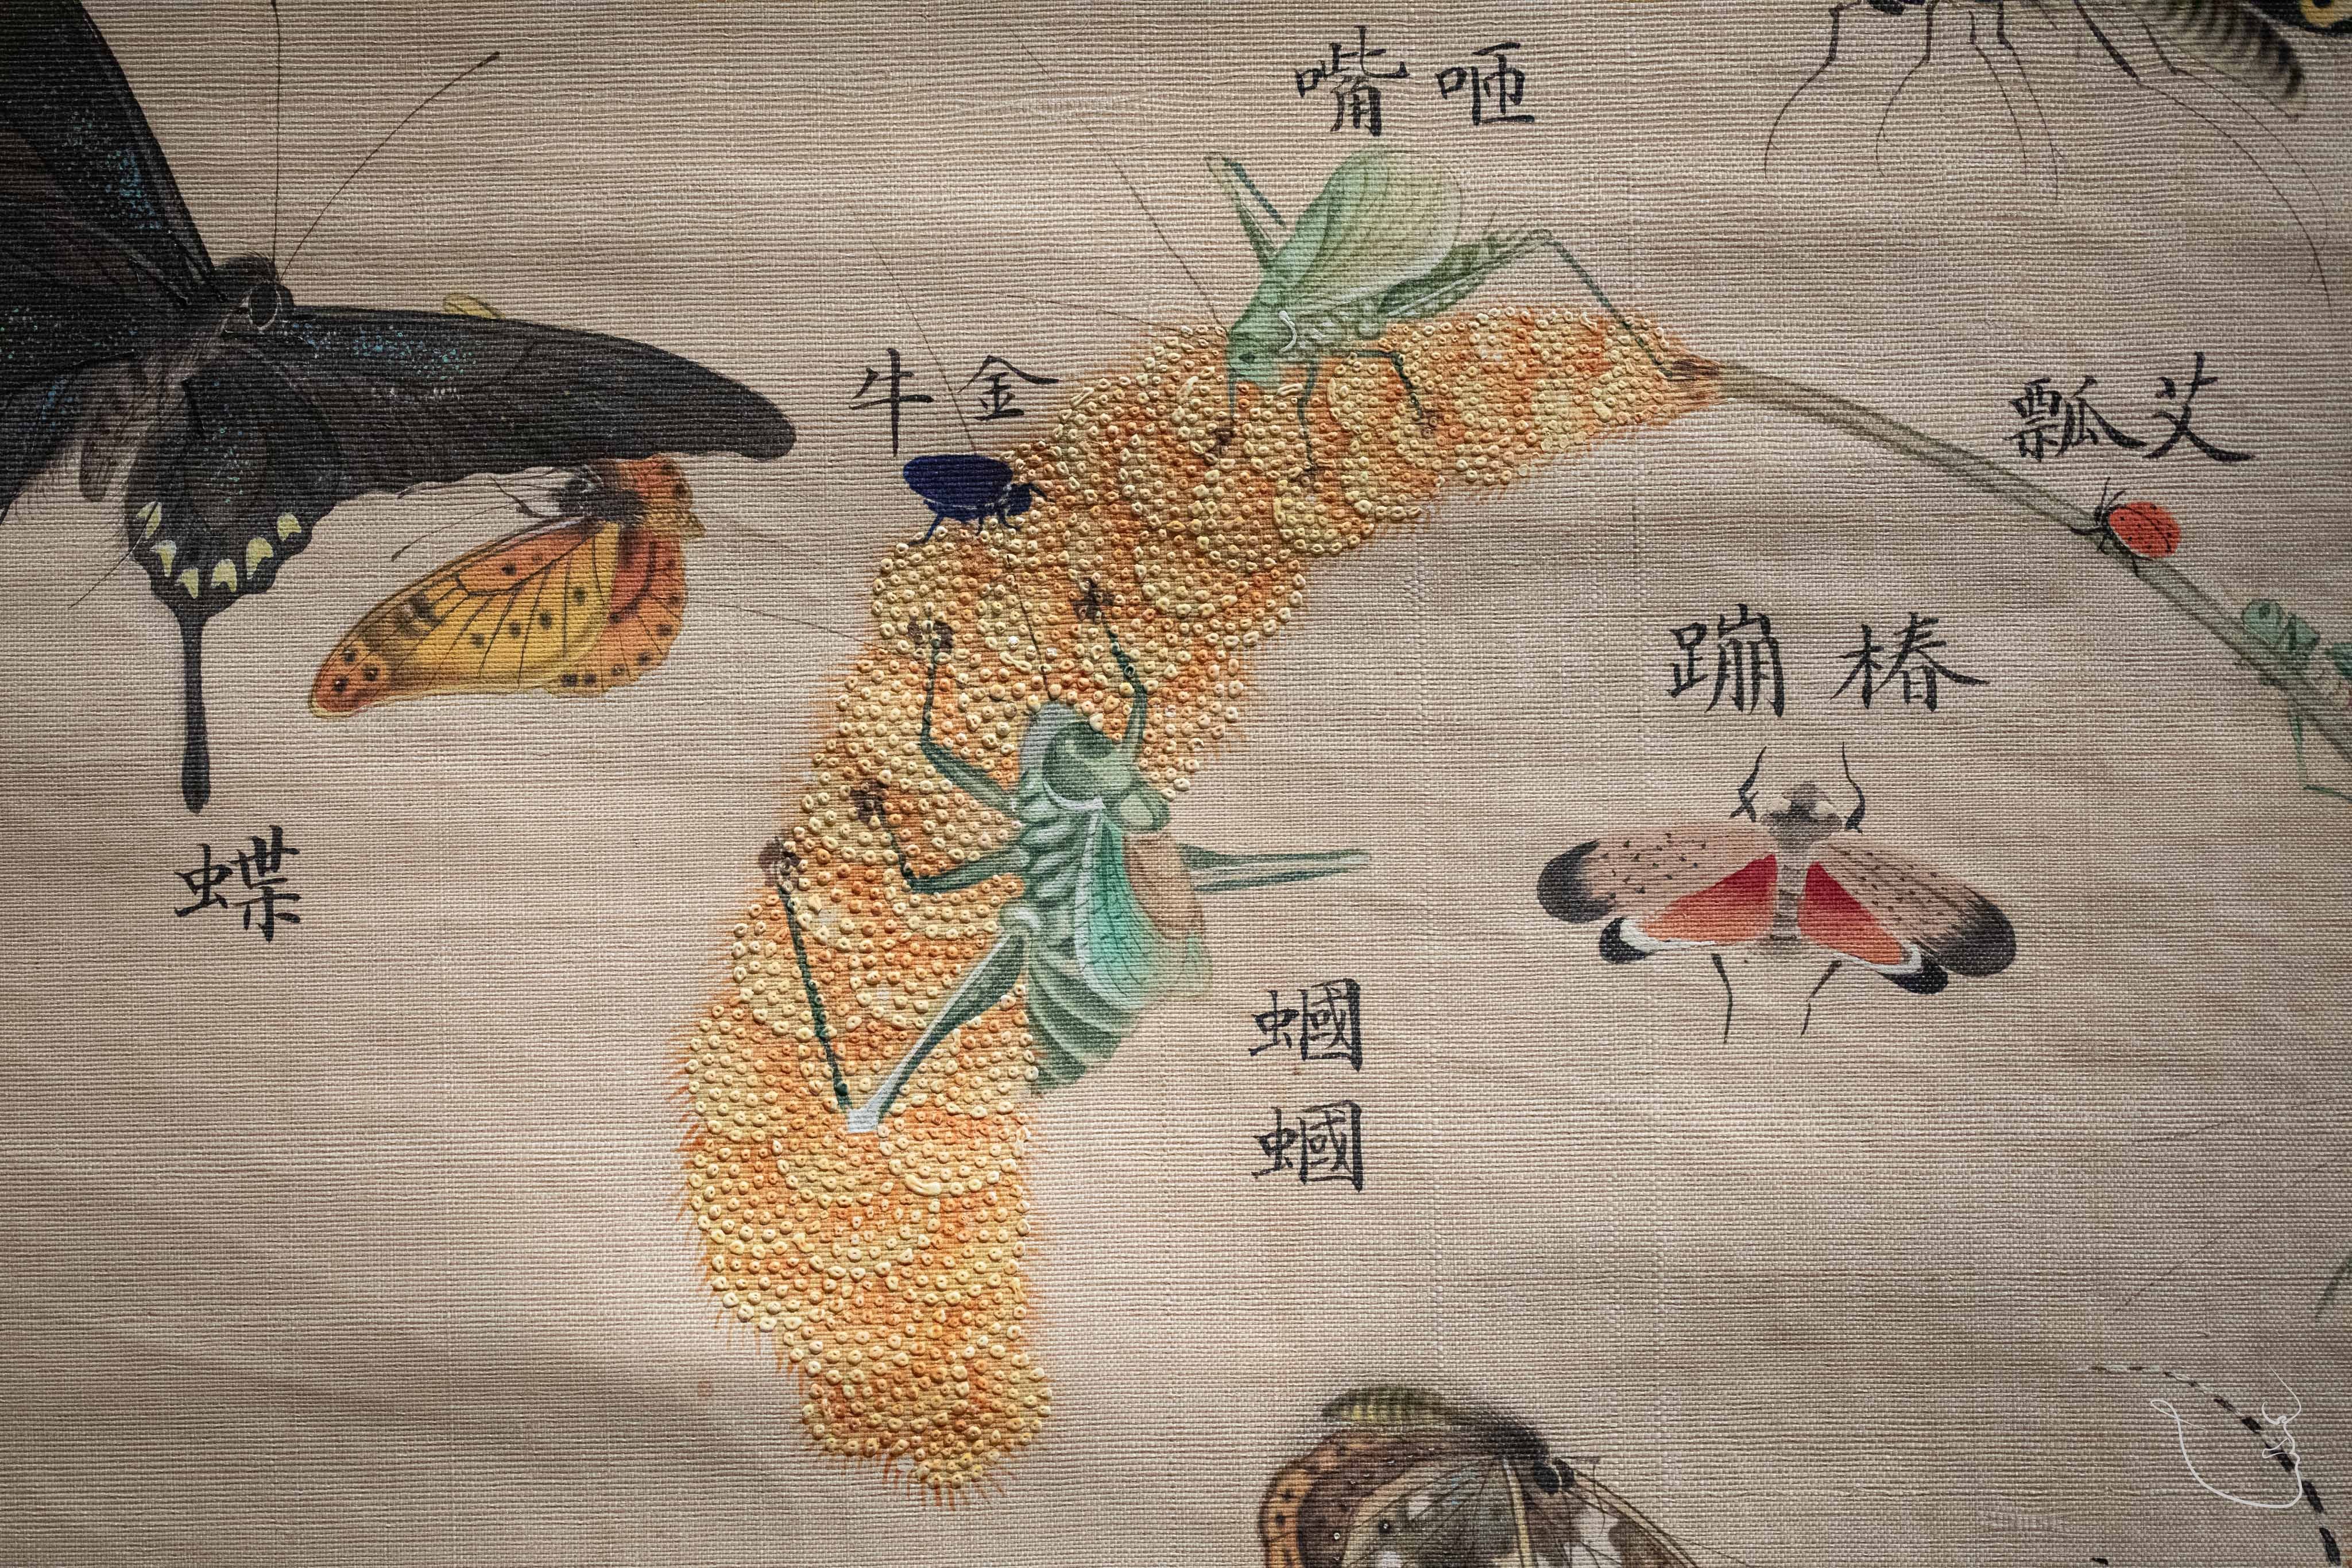 咂嘴
金牛
艾瓢
椿蹦
蝶
蟈
蟈